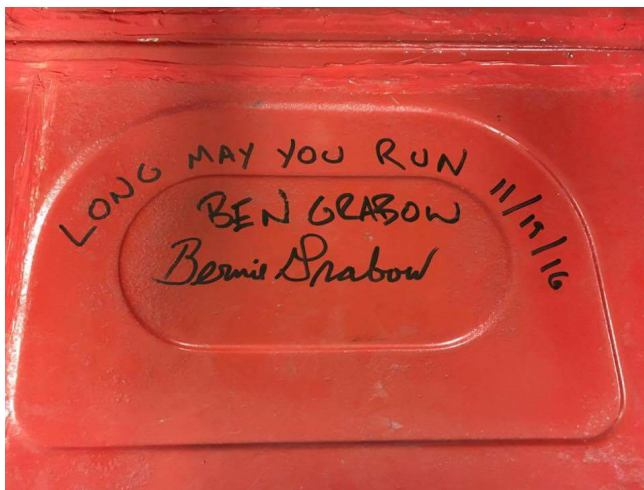 LONG MAY YOU RUN 11/19/16
BEN GRABOW
Bernie Grabow